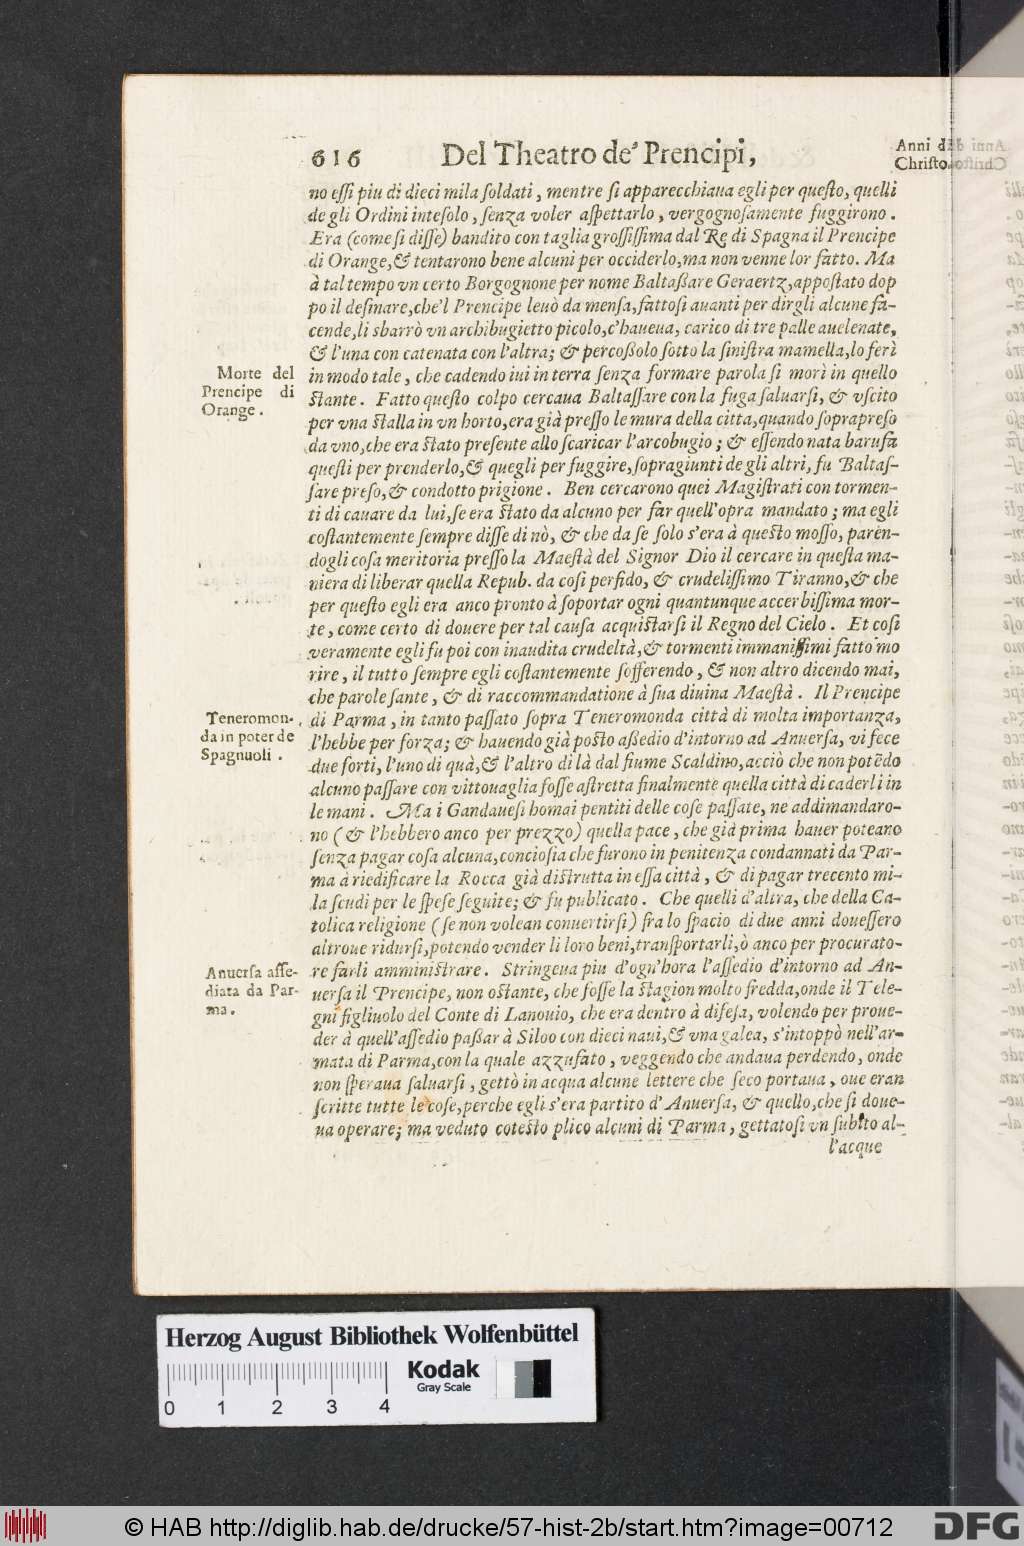 616 Del Theatro de' Prencipi,
Anni di
Christo.
no essi piu di dieci mila soldati, mentre si apparecchiaua egli per questo, quelli
de gli Ordini inteſolo, ſenza voler aſpettarlo, vergognoſamente fuggirono.
Era (come ſi diſſe) bandito con taglia groſſiſſima dal Re di Spagna il Prencipe
di Orange,& tentarono bene alcuni per occiderlo,ma non venne lor fatto. Ma
à tal tempo vn certo Borgognone per nome Baltaſſare Geraertz,appoſtato dop
po il deſinare,che'l Prencipe leuò da menſa,fattoſi auanti per dirgli alcune fa-
cende,li sbarrò vn archibugietto picolo,c'haueua, carico di tre palle auelenate,
& l'una con catenata con l'altra; & percoſſolo ſotto la ſiniſtra mamella,lo ferì
in modo tale, che cadendo iui in terra ſenza formare parola ſi morì in quello
ſtante. Fatto queſto colpo cercaua Baltaſſare con la fuga ſaluarſi, & vſcito
per vna ſtalla in vn horto,era già preſſo le mura della citta,quando ſoprapreſo
da vno,che era ſtato preſente allo ſcaricar l'arcobugio; & eſſendo nata barufa
queſti per prenderlo,& quegli per fuggire,ſopragiunti de gli altri, fu Baltaſ-
ſare preſo,& condotto prigione. Ben cercarono quei Magiſtrati con tormen-
ti di cauare da lui,ſe era ſtato da alcuno per far quell'opra mandato; ma egli
coſtantemente ſempre diſſe di nò, & che da ſe ſolo s'era à queſto moſſo, paren-
dogli coſa meritoria preſſo la Maeſtà del Signor Dio il cercare in queſta ma-
niera di liberar quella Repub. da coſi perfido, & crudeliſſimo Tiranno,& che
per queſto egli era anco pronto à ſoportar ogni quantunque accerbiſſima mor-
te, come certo di douere per tal cauſa acquiſtarſi il Regno del Cielo. Et coſi
veramente egli fu poi con inaudita crudeltà,& tormenti immaniſſimi fatto mo
rire, il tutto ſempre egli coſtantemente ſofferendo, & non altro dicendo mai,
che parole ſante, & di raccommandatione à ſua diuina Maeſtà. Il Prencipe
di Parma, in tanto paſſato ſopra Teneromonda città di molta importanza,
l'hebbe per forza; & hauendo già poſto aſſedio d'intorno ad Anuerſa, vi fece
due forti, l'uno di quà,& l'altro di là dal fiume Scaldino,acciò che non potẽdo
alcuno paſſare con vittouaglia foſſe aſtretta finalmente quella città di caderli in
le mani. Ma i Gandaueſi homai pentiti delle coſe paſſate, ne addimandaro-
no (& l'hebbero anco per prezzo) quella pace, che già prima hauer poteano
ſenza pagar coſa alcuna,concioſia che furono in penitenza condannati da Par-
ma à riedificare la Rocca già diſtrutta in eſſa città, & di pagar trecento mi-
la ſcudi per le ſpeſe ſeguite; & fu publicato. Che quelli d'altra, che della Ca-
tolica religione (ſe non volean conuertirſi) fra lo ſpacio di due anni doueſſero
altroue ridurſi,potendo vender li loro beni,tranſportarli,ò anco per procurato-
re farli amminiſtrare. Stringeua piu d'ogn'hora l'aſſedio d'intorno ad An-
uerſa il Prencipe, non oſtante, che foſſe la ſtagion molto fredda,onde il Tele-
gni figliuolo del Conte di Lanouio, che era dentro à difeſa, volendo per proue-
der à quell'aſſedio paſſar à Siloo con dieci naui,& vna galea, s'intoppò nell'ar-
mata di Parma,con la quale azzuffato, veggendo che andaua perdendo, onde
non ſperaua ſaluarſi, gettò in acqua alcune lettere che ſeco portaua, oue eran
ſcritte tutte le coſe,perche egli s'era partito d'Anuerſa, & quello,che ſi doue-
ua operare; ma veduto coteſto plico alcuni di Parma, gettatoſi vn ſubito al-
l'acque
Morte del
Prencipe di
Orange.
Teneromon-
da in poter de
Spagnuoli.
Anuerſa aſſe-
diata da Par-
ma.
Herzog August Bibliothek Wolfenbüttel
Kodak
Gray Scale
0 1 2 3 4
© HAB http://diglib.hab.de/drucke/57-hist-2b/start.htm?image=00712
DFG